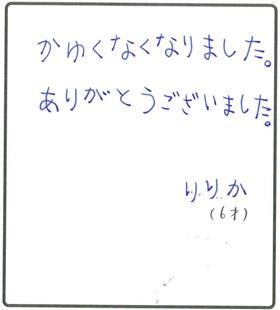 かゆくなくなりました。
ありがとうございました。
りりか
(6才)